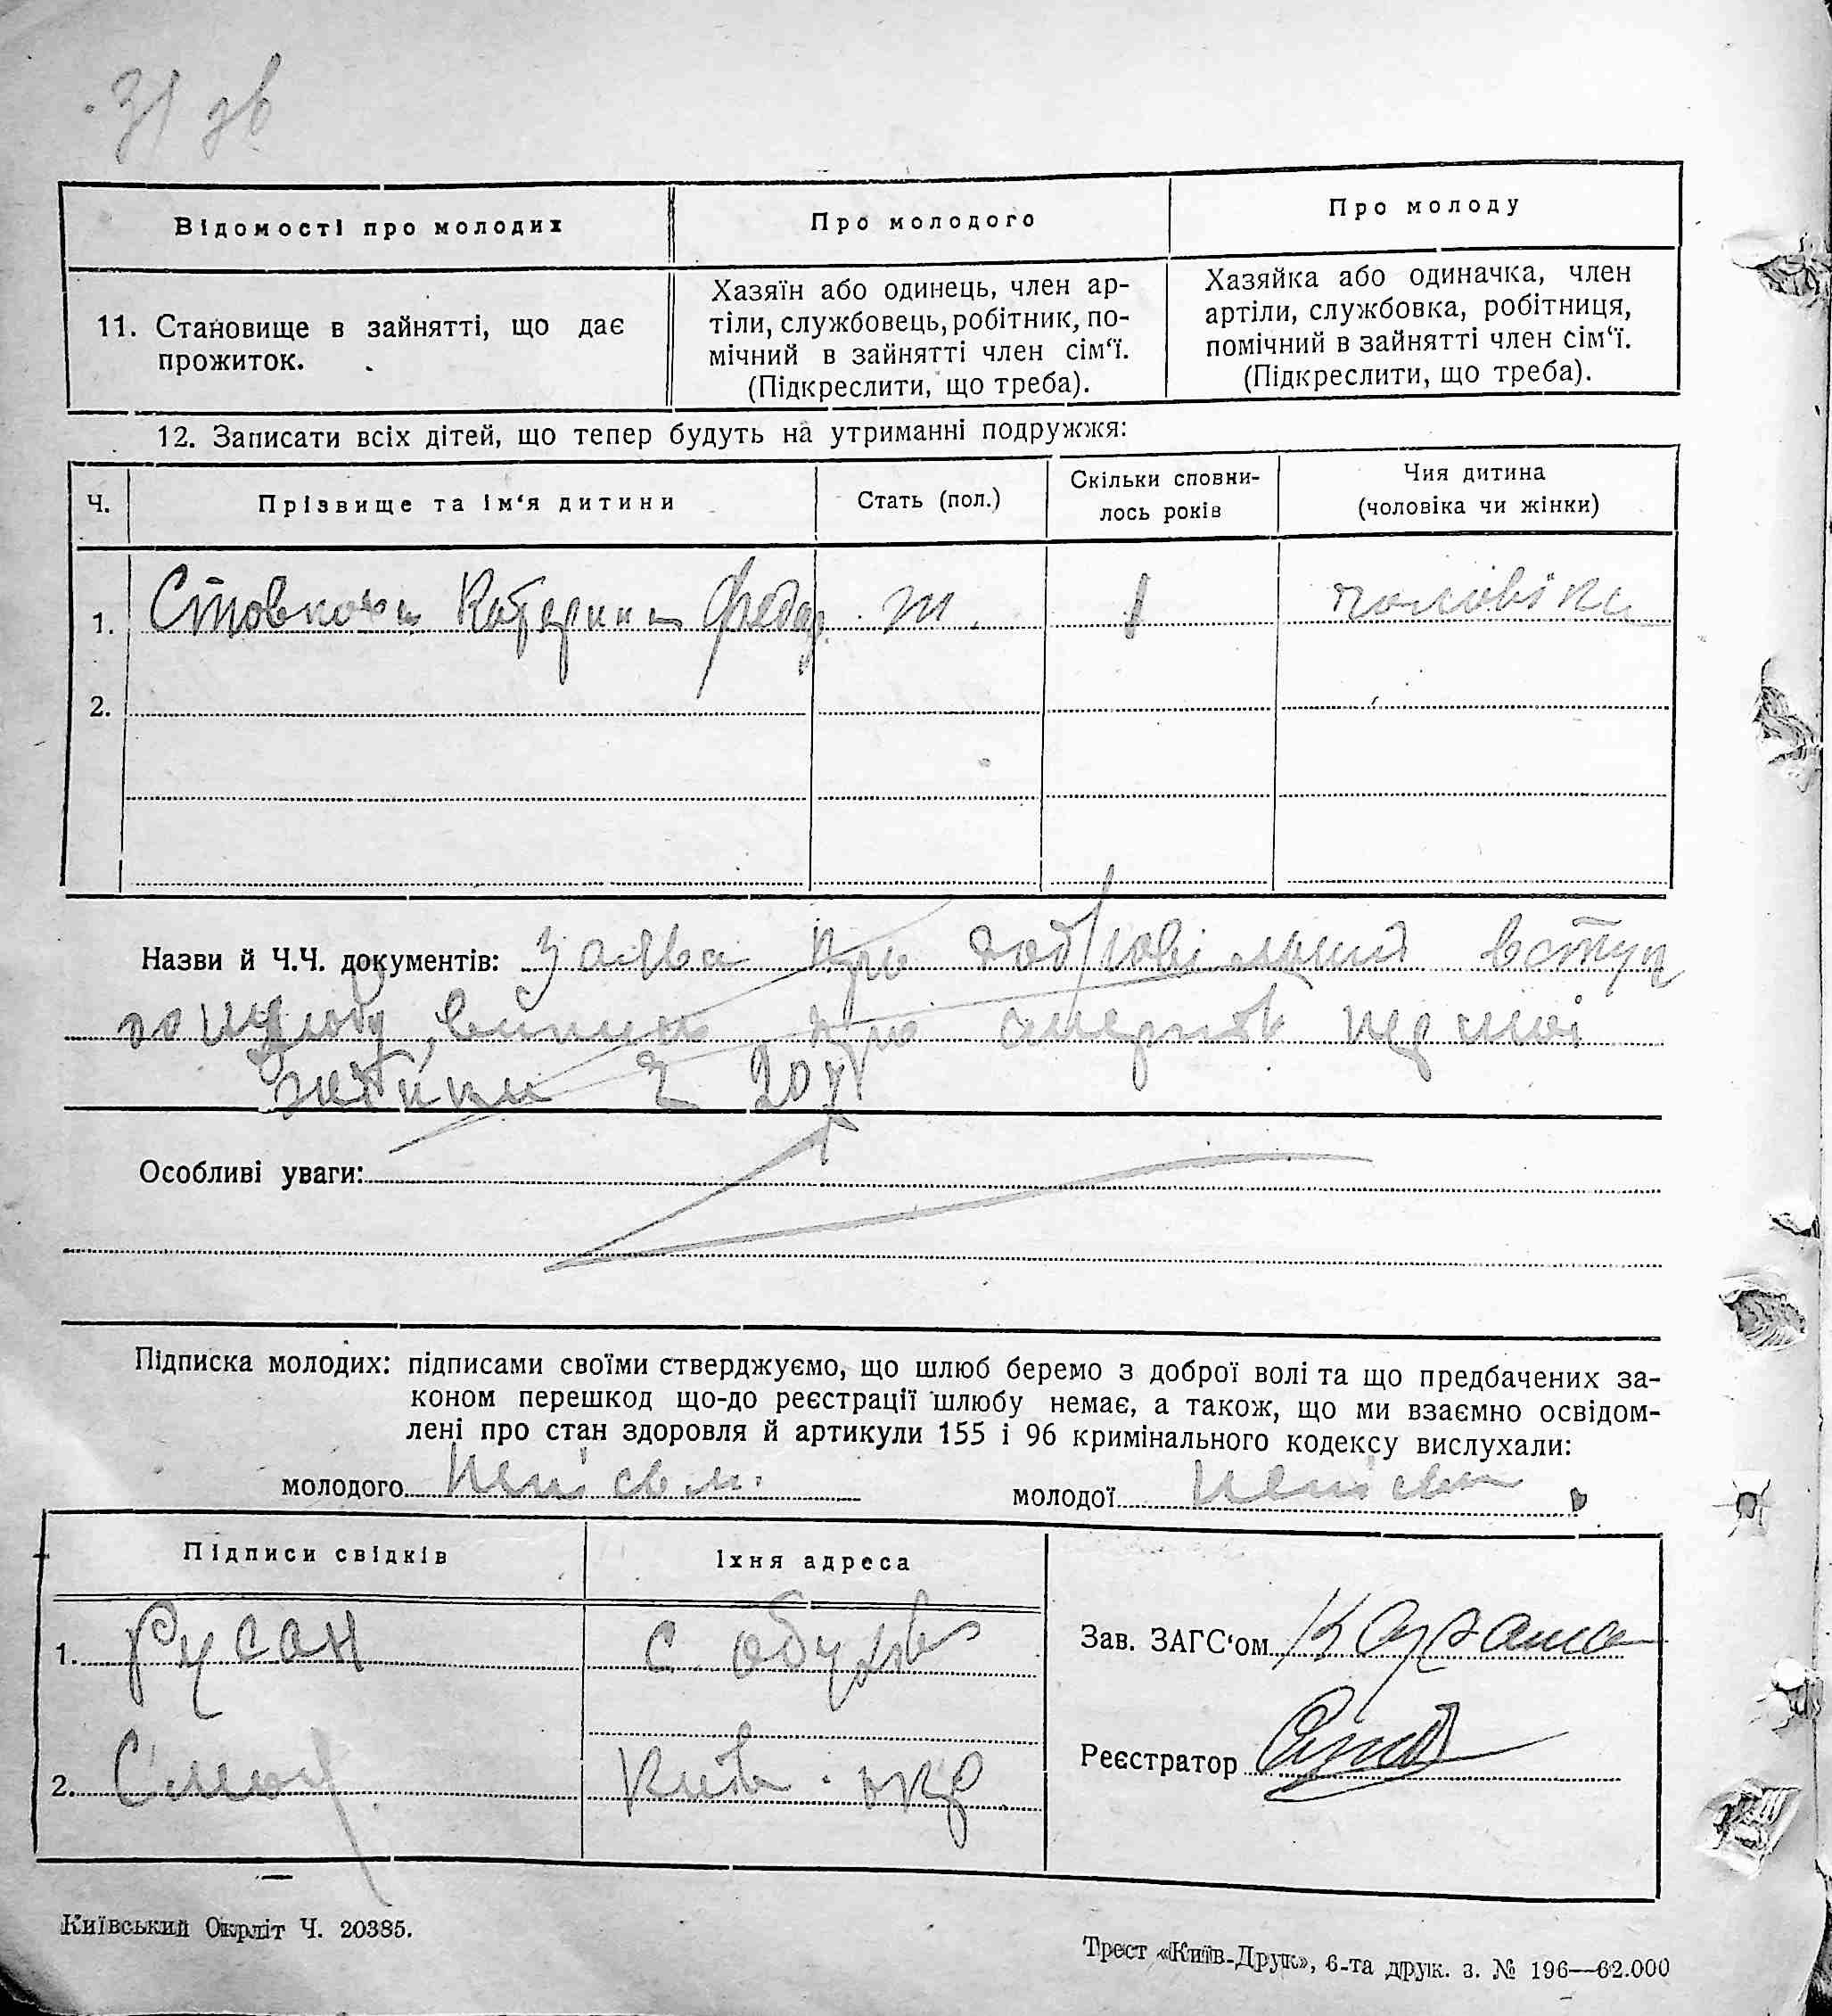 31 зв
Відомості про молодих
Про молодого
Про молоду
11. Становище в зайнятті, що дає
прожиток.
Хазяїн або одинець, член ар-
тіли, службовець, робітник, по-
мічний в зайнятті член сім‘ї.
(Підкреслити, що треба).
Хазяйка або одиначка, член
артіли, службовка, робітниця,
помічний в зайнятті член сім‘ї.
(Підкреслити, що треба).
12. Записати всіх дітей, що тепер будуть на утриманні подружжя:
Ч.
Прізвище та ім‘я дитини
Стать (пол.)
Скільки сповни-
лось років
Чия дитина
(чоловіка чи жінки)
1. Катерина Федор. ж. 1 чоловіка
2.
Назви й Ч.Ч. документів: Заява про добровільний вступ
до шлюбу, про першої
жінки
Особливі уваги:
Підписка молодих: підписами своїми стверджуємо, що шлюб беремо з доброї волі та що предбачених за-
коном перешкод що-до реєстрації шлюбу немає, а також, що ми взаємно освідом-
лені про стан здоровля й артикули 155 і 96 кримінального кодексу вислухали:
молодого Непісьм. молодої
Підписи свідків
Їхня адреса
1. Русан
с.
2.
Київ. окр
Зав. ЗАГС‘ом
Реєстратор
Київський Окрліт Ч. 20385.
Трест «Київ-Друк», 6-та друк. з. № 196—62.000